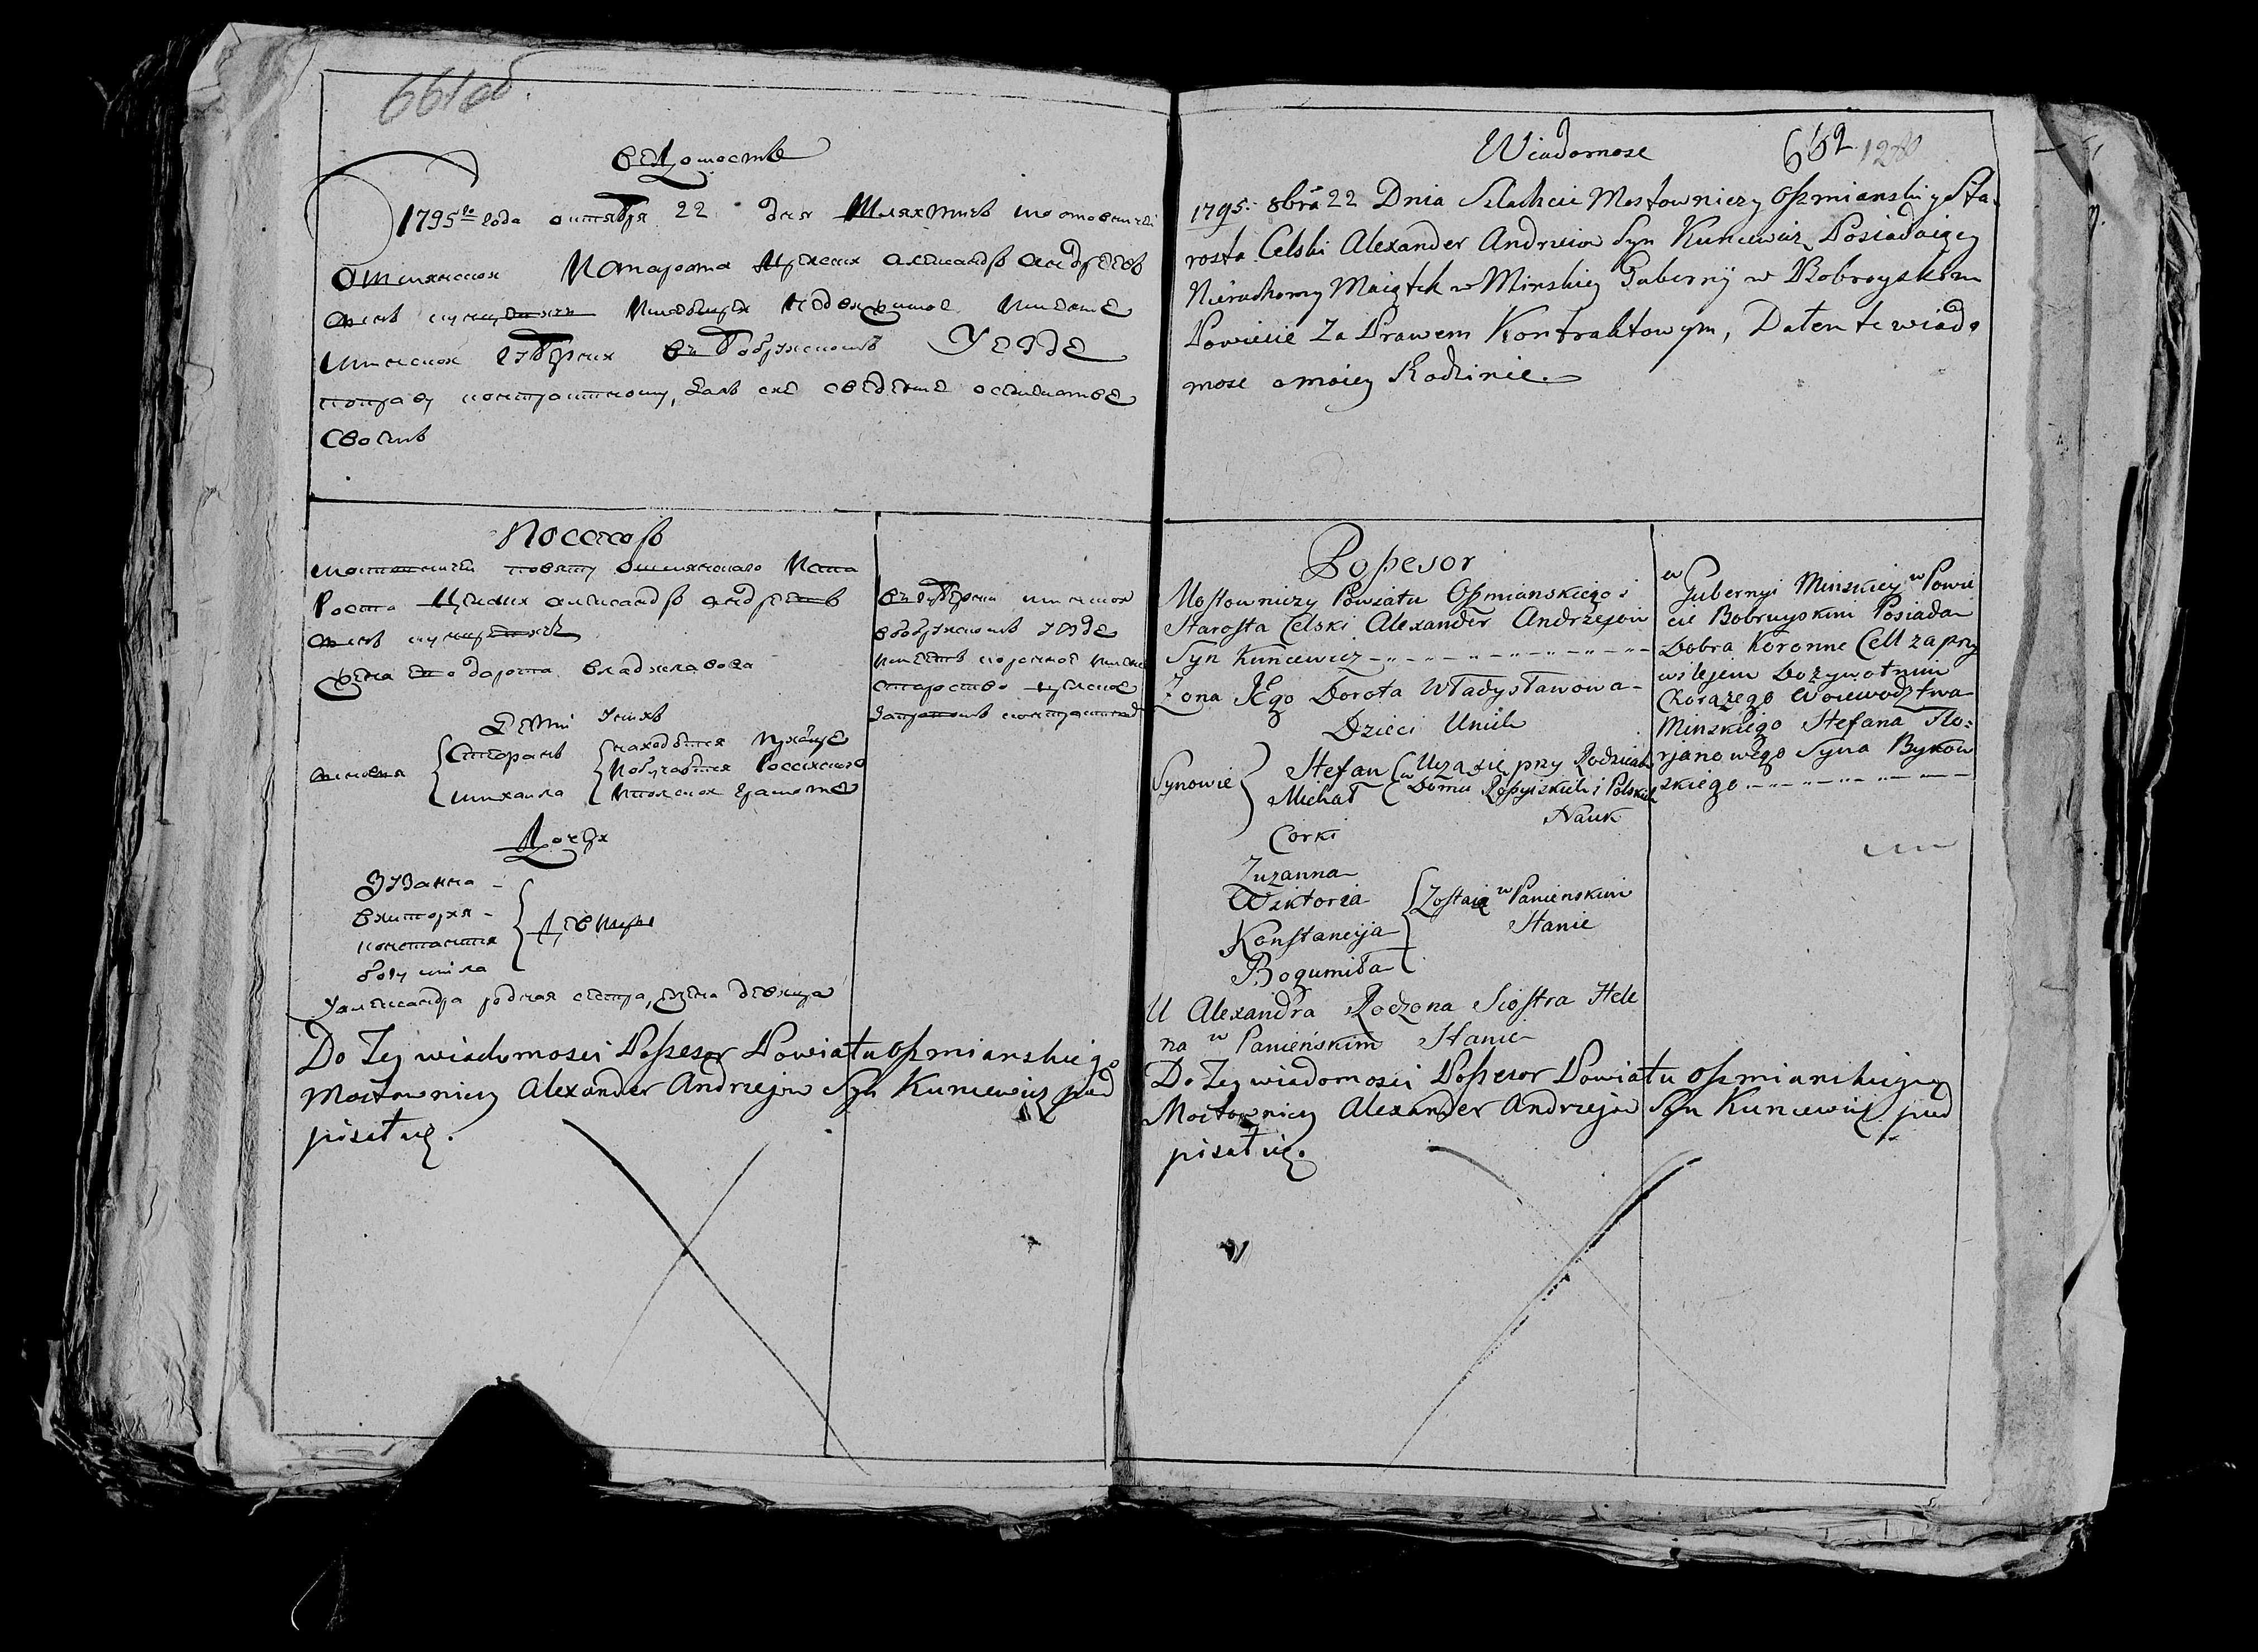 661об.
Ведомость
1795го года октября 22 дня Шляхтичь мостовничей
Ошмянской Истароста Целский александръ андреевъ
сынъ кунцевичь Имеющей Недвижимое Имение
Минской губернии въ бобруйскомъ Уезде
поправу контрактному, далъ сие сведение осемействе
своемъ
Посесоръ
мостовничей повету ошмянского Иста
Роста Целский александръ андреевъ
сынъ кунцевичь
жена его дарота владиславова
Дети Унихъ
сыновья
Стефанъ
михаила
находятся придоме
Иобучаются Российской
Ипольской грамоте
Дочери
Зузанна -
виктория -
констанция
богумила
Девицы
Уалександра родная сестра, елена девица
въ губернии минской
вбобруйскомъ уезде
имеетъ коронное имение
староство целское
заправомъ контрактнымъ
Do Tey wiadomosci Possesor Powiatu Oszmianskiego
Mostowniczy Alexander Andrzejow Syn Kuncewicz pod
pisał się.
Wiadomosc
662 1280
1795. 8bra 22 Dnia Szlachcic Mostowniczy Oszmianski y Sta
rosta Celski Alexander Andrzeiow Syn Kuncewicz Posiadaiący
Nieruchomy Maiątek w Minskiey Gubernij w Bobroyskim
Powiecie Za Prawem Kontraktowym, Dałem te wiado
mosc o moiey Rodzinie.
Possesor
Mostowniczy Powiatu Oszmianskiego i
Starosta Celski Alexander Andrzejow
Syn Kuncewicz
Zona JEgo Dorota Władysławowa -
Dzieci Unich
Synowie
Stefan
Michał
Uczą się przy Rodzicach
w Domu Rossyiskich i Polskich
Nauk
Corki
Zuzanna
Wiktoria
Konstancija
Bogumiła
Zostaią w Panienskim
Stanie
U Alexandra Rodzona Siostra Hele
na w Panieńskim Stanie
w Gubernyi Minskiey w Powie
cie Bobruyskim Posiada
Dobra Koronne Cell za przy
wilejem Dożywotnim
Chorążego Woiewodztwa
Minskiego Stefana Flo:
rjanowego Syna Bykow
skiego
Do Tey wiadomosci Possesor Powiatu Oszmianskiego
Mostowniczy Alexander Andrzejow Syn Kuncewicz pod
pisał się.